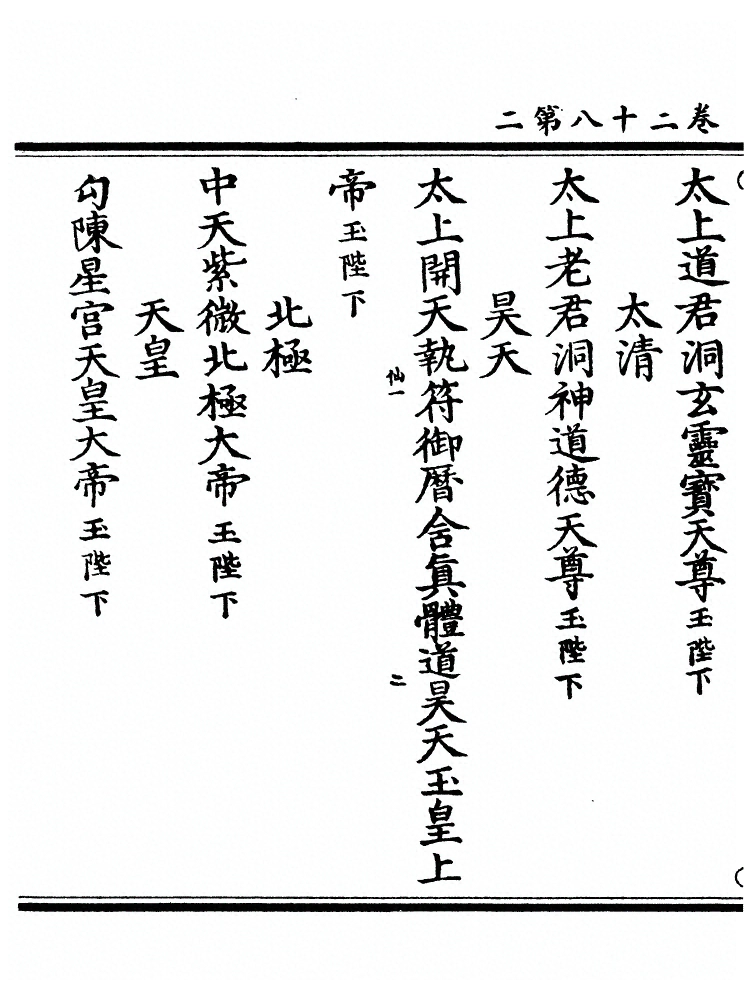 卷二十八第二
太上道君洞玄靈寶天尊玉陛下
太清
太上老君洞神道德天尊玉陛下
昊天
太上開天執符御曆含眞體道昊天玉皇上
帝玉陛下
仙一
二
北極
中天紫微北極大帝玉陛下
天皇
勾陳星宮天皇大帝玉陛下